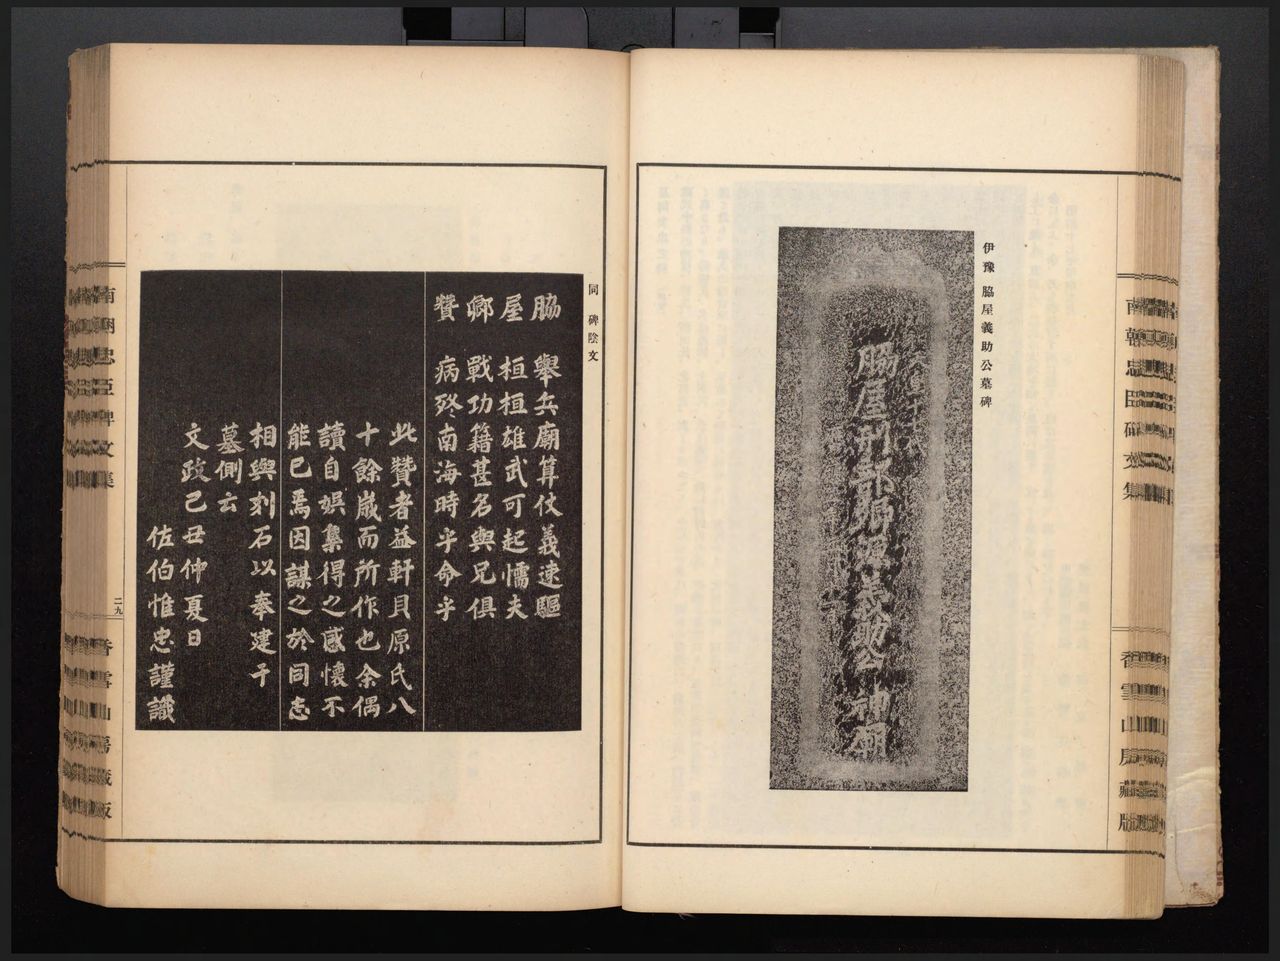 伊豫 脇屋義助公墓碑
脇屋刑部卿源義助公神廟
南朝忠臣碑文集
香雪山房藏版
同 碑陰文
脇 擧兵廟算仗義遠驅
屋 桓桓雄武可起懦夫
卿 戰功籍甚名與兄俱
贊 病歿南海時乎命乎
此贊者益軒貝原氏八
十餘歲而所作也余偶
讀自娯集得之感懷不
能已焉因謀之於同志
相與刻石以奉建于
墓側云
文政己丑仲夏日
佐伯惟忠謹識
南朝忠臣碑文集
二九
香雪山房藏版